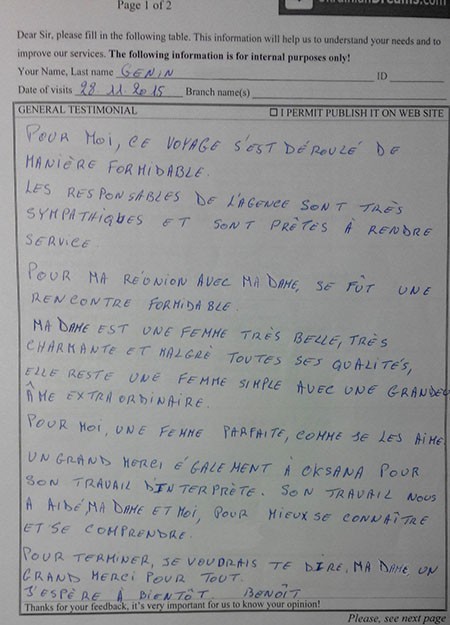 Page 1 of 2
Dreams.com
Dear Sir, please fill in the following table. This information will help us to understand your needs and to
improve our services. The following information is for internal purposes only!
Your Name, Last name GENIN ID
Date of visits 28 11 2015 Branch name(s)
GENERAL TESTIMONIAL ☐ I PERMIT PUBLISH IT ON WEB SITE
POUR MOI, CE VOYAGE S'EST DÉROULÉ DE
MANIÈRE FORMIDABLE.
LES RESPONSABLES DE L'AGENCE SONT TRÈS
SYMPATHIQUES ET SONT PRÈTES À RENDRE
SERVICE.
POUR MA RÉUNION AVEC MADAME, SE FÛT UNE
RENCONTRE FORMIDABLE.
MADAME EST UNE FEMME TRÈS BELLE, TRÈS
CHARMANTE ET MALGRÈ TOUTES SES QUALITÉS,
ELLE RESTE UNE FEMME SIMPLE AVEC UNE GRANDE
ÂME EXTRAORDINAIRE.
POUR MOI, UNE FEMME PARFAITE, COMME JE LES AIME.
UN GRAND MERCI ÉGALEMENT À OKSANA POUR
SON TRAVAIL D'INTERPRÈTE. SON TRAVAIL NOUS
A AIDÉ MADAME ET MOI, POUR MIEUX SE CONNAÎTRE
ET SE COMPRENDRE.
POUR TERMINER, JE VOUDRAIS TE DIRE, MADAME UN
GRAND MERCI POUR TOUT.
J'ESPÈRE À BIENTÔT. BENOÎT
Thanks for your feedback, it's very important for us to know your opinion!
Please, see next page